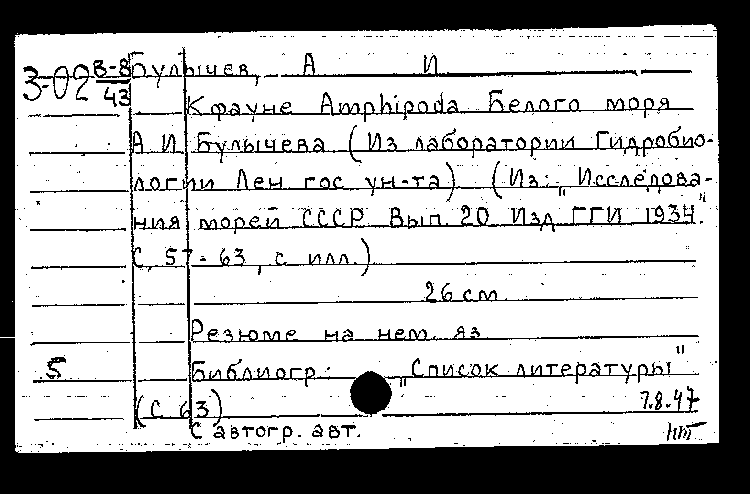 3-02 8-8/43 Булычев, А И
К фауне Amphipoda Белого моря
А И Булычева (Из лаборатории Гидробио-
логии Лен гос ун-та) (Из: „Исследова-
ния морей СССР Вып. 20 Изд ГГИ 1934"
С, 57-63, с илл.)
26 см.
Резюме на нем. яз
5 Библиогр: „Список литературы"
(С 63) 7.8.47
С автогр. авт.